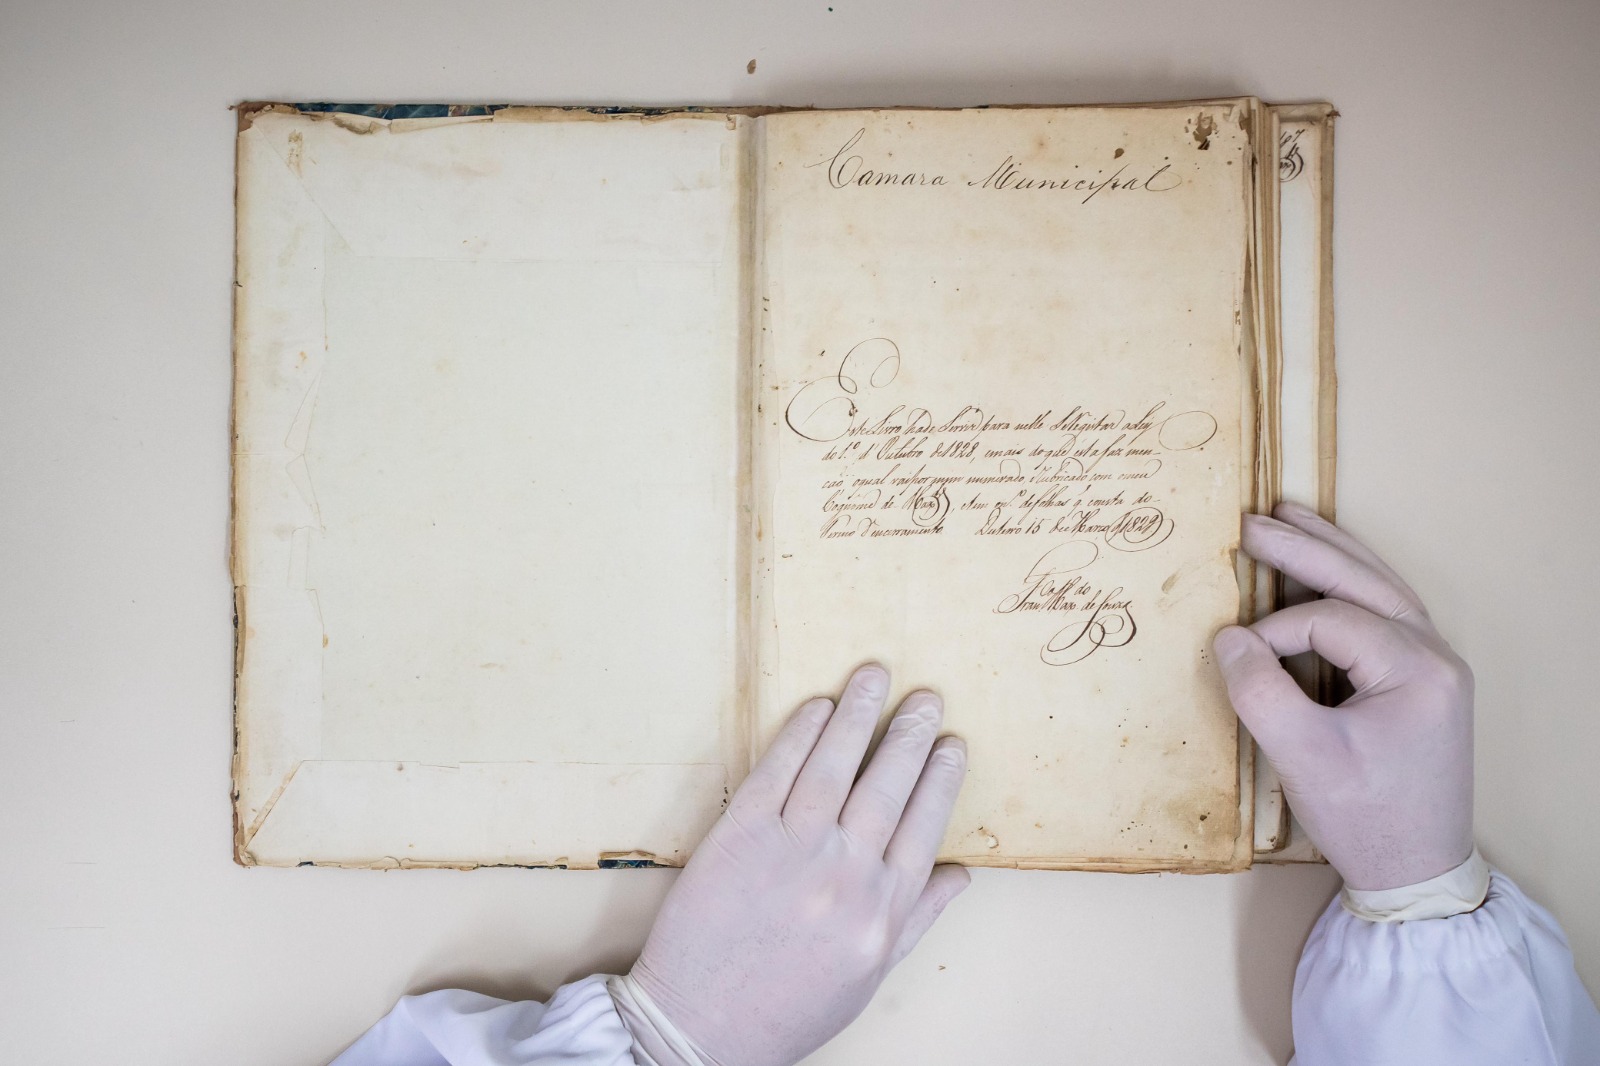 Camara Municipal
Este Livro hade Servir para nelle Se Regitar a Ley
do 1.º d'Outubro de 1828, emais do que esta faz men-
cao o qual vai por mim numerado, Rubricado com o meu
Cognome de, etem no de folhas q consta do
Termo d'encerramento 15 de Março d 1829
Fran. de Souza
197